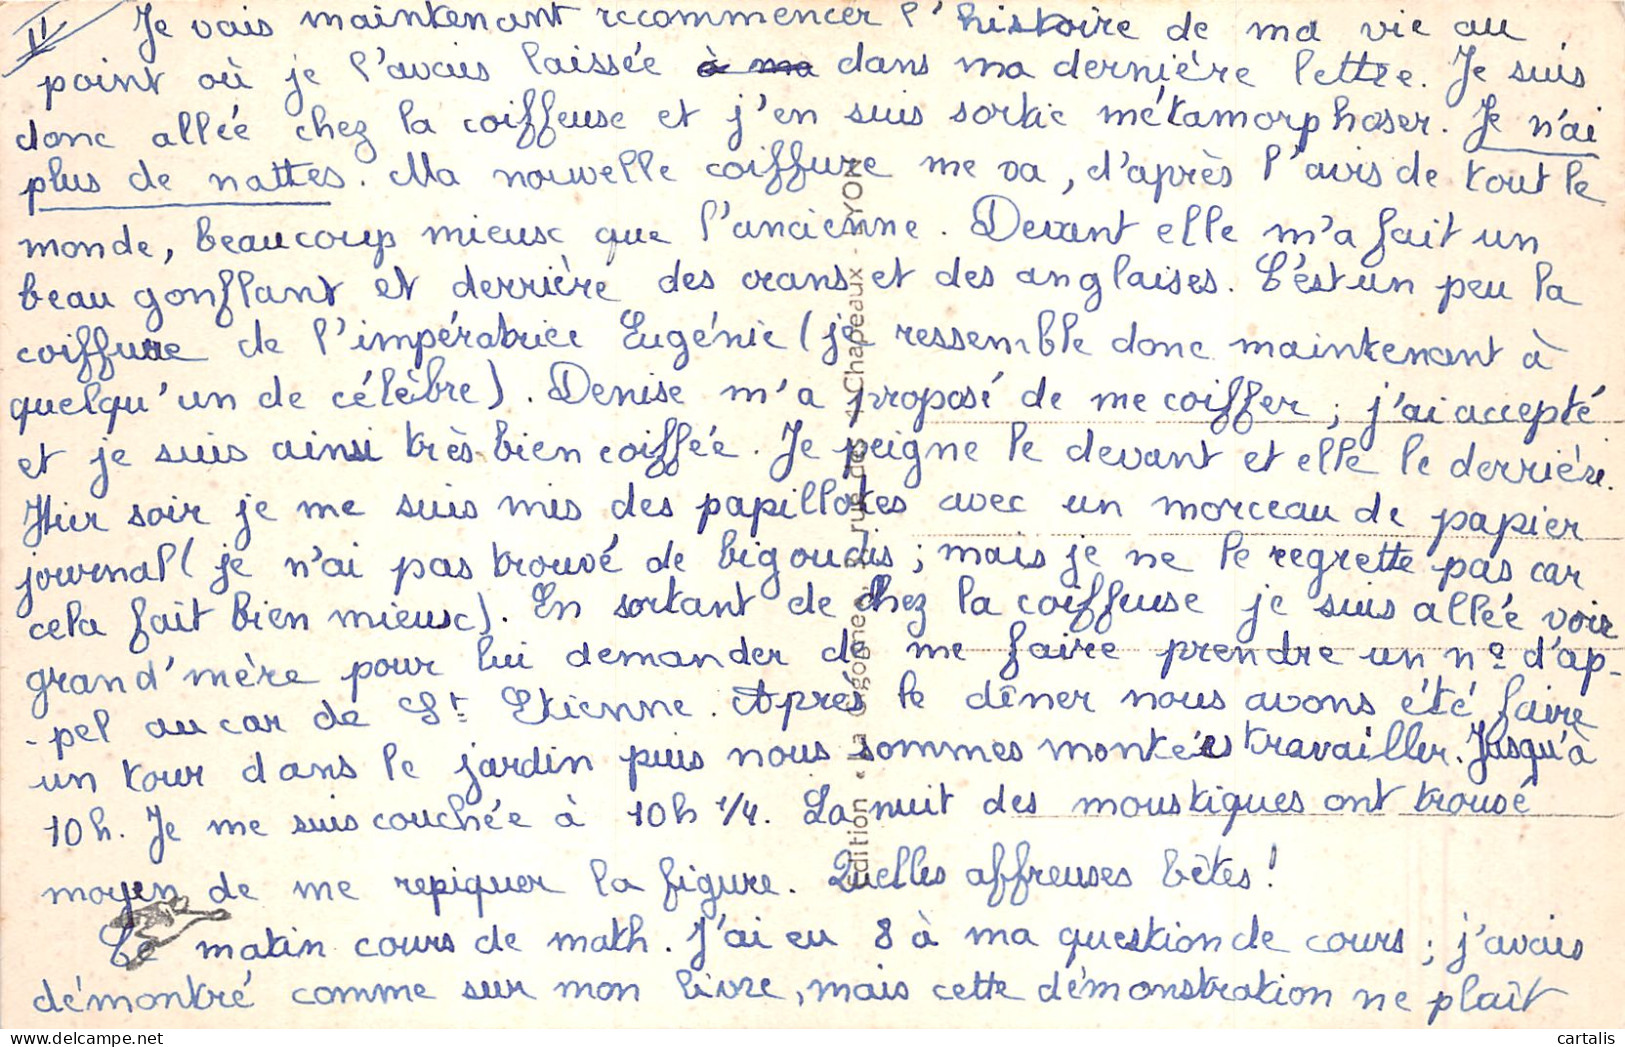 II Je vais maintenant recommencer l'histoire de ma vie au
point où je l'avais laissée à ma dans ma dernière lettre. Je suis
donc allée chez la coiffeuse et j'en suis sortie métamorphoser. Je n'ai
plus de nattes. Ma nouvelle coiffure me va, d'après l'avis de tout le
monde, beaucoup mieux que l'ancienne. Devant elle m'a fait un
beau gonflant et derrière des crans et des anglaises. C'est un peu la
coiffure de l'impératrice Eugénie (je ressemble donc maintenant à
quelqu'un de célèbre). Denise m'a proposé de me coiffer ; j'ai accepté
et je suis ainsi très bien coiffée. Je peigne le devant et elle le derrière.
Hier soir je me suis mis des papillotes avec un morceau de papier
journal (je n'ai pas trouvé de bigoudis ; mais je ne le regrette pas car
cela fait bien mieux). En sortant de chez la coiffeuse je suis allée voir
grand'mère pour lui demander de me faire prendre un nº d'ap-
-pel au car de St Etienne. Après le dîner nous avons été faire
un tour dans le jardin puis nous sommes montées travailler. Jusqu'à
10h. Je me suis couchée à 10h 1/4. La nuit des moustiques ont trouvé
moyen de me repiquer la figure. Quelles affreuses bêtes !
Ce matin cours de math. J'ai eu 8 à ma question de cours ; j'avais
démontré comme sur mon livre, mais cette démonstration ne plaît
Edition « La Cigogne » rue des Chapeaux - LYON
cartalis.com